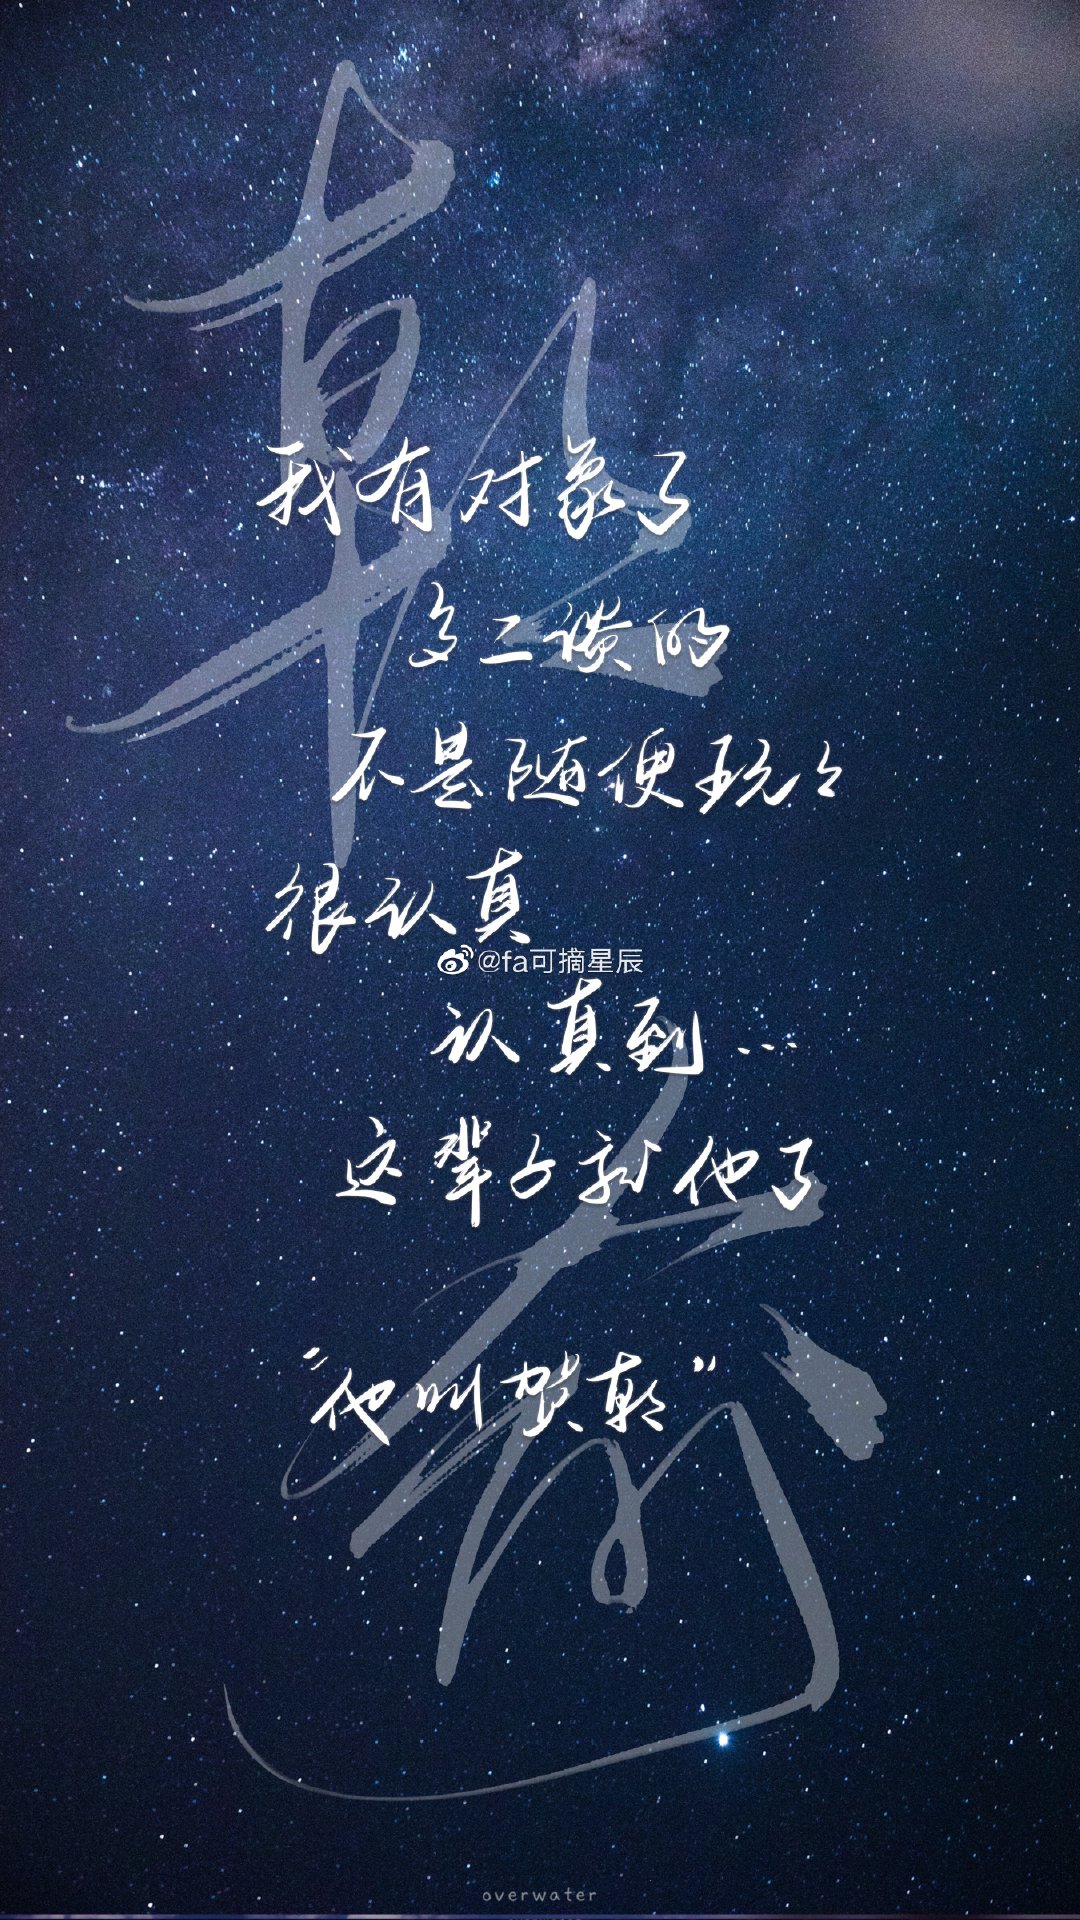 我有对象了
高二谈的
不是随便玩玩
很认真
@fa可摘星辰
认真到...
这辈子就他了
“他叫贺朝”
overwater